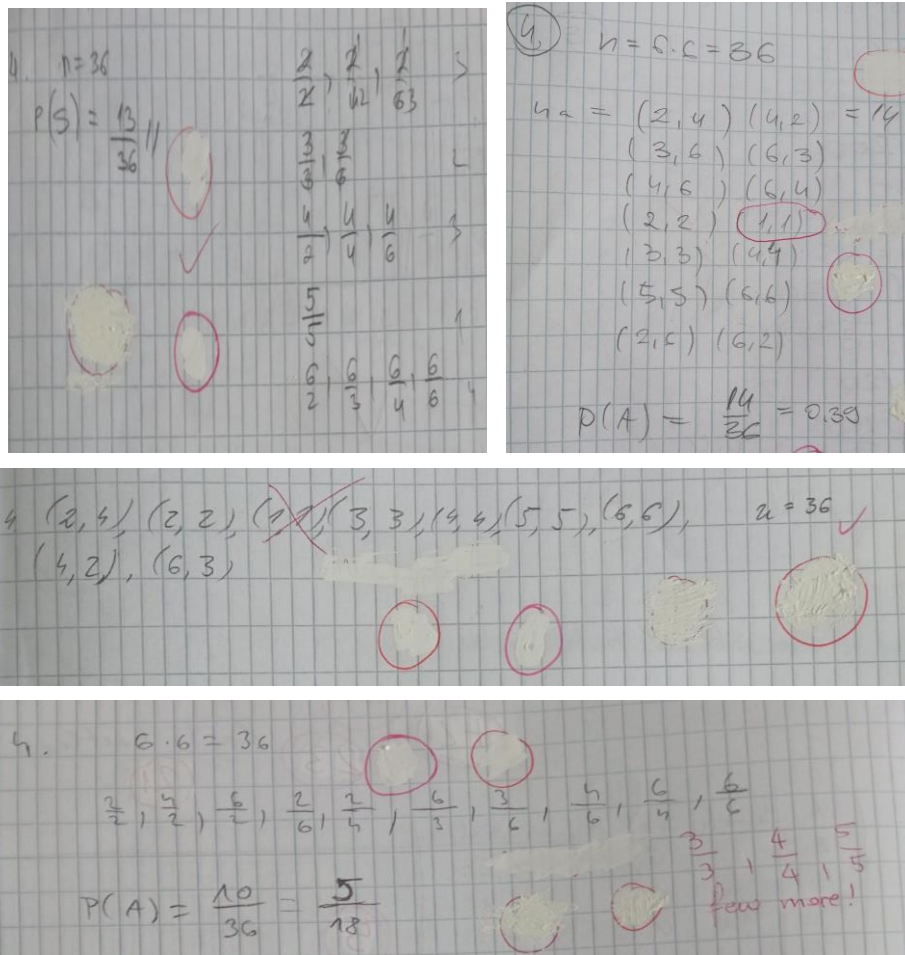 4. n=36
P(S) = 13/36
1/2, 1/42, 1/63
3/3, 3/6
4/2, 4/4, 4/6 3
5/5 1
6/2, 6/3, 6/4, 6/6 4
4. n = 6·6 = 36
na = (2,4) (4,2) = 14
(3,6) (6,3)
(4,6) (6,4)
(2,2) (1,1)
(3,3) (4,4)
(5,5) (6,6)
(2,6) (6,2)
P(A) = 14/36 = 0.39
4 (2,4), (2,2), (1,1), (3,3), (4,4), (5,5), (6,6), n = 36
(4,2), (6,3)
4. 6·6 = 36
2/2, 4/2, 6/2, 2/6, 2/4, 6/3, 3/6, 4/6, 6/4, 6/6
3/3, 4/4, 5/5
few more!
P(A) = 10/36 = 5/18